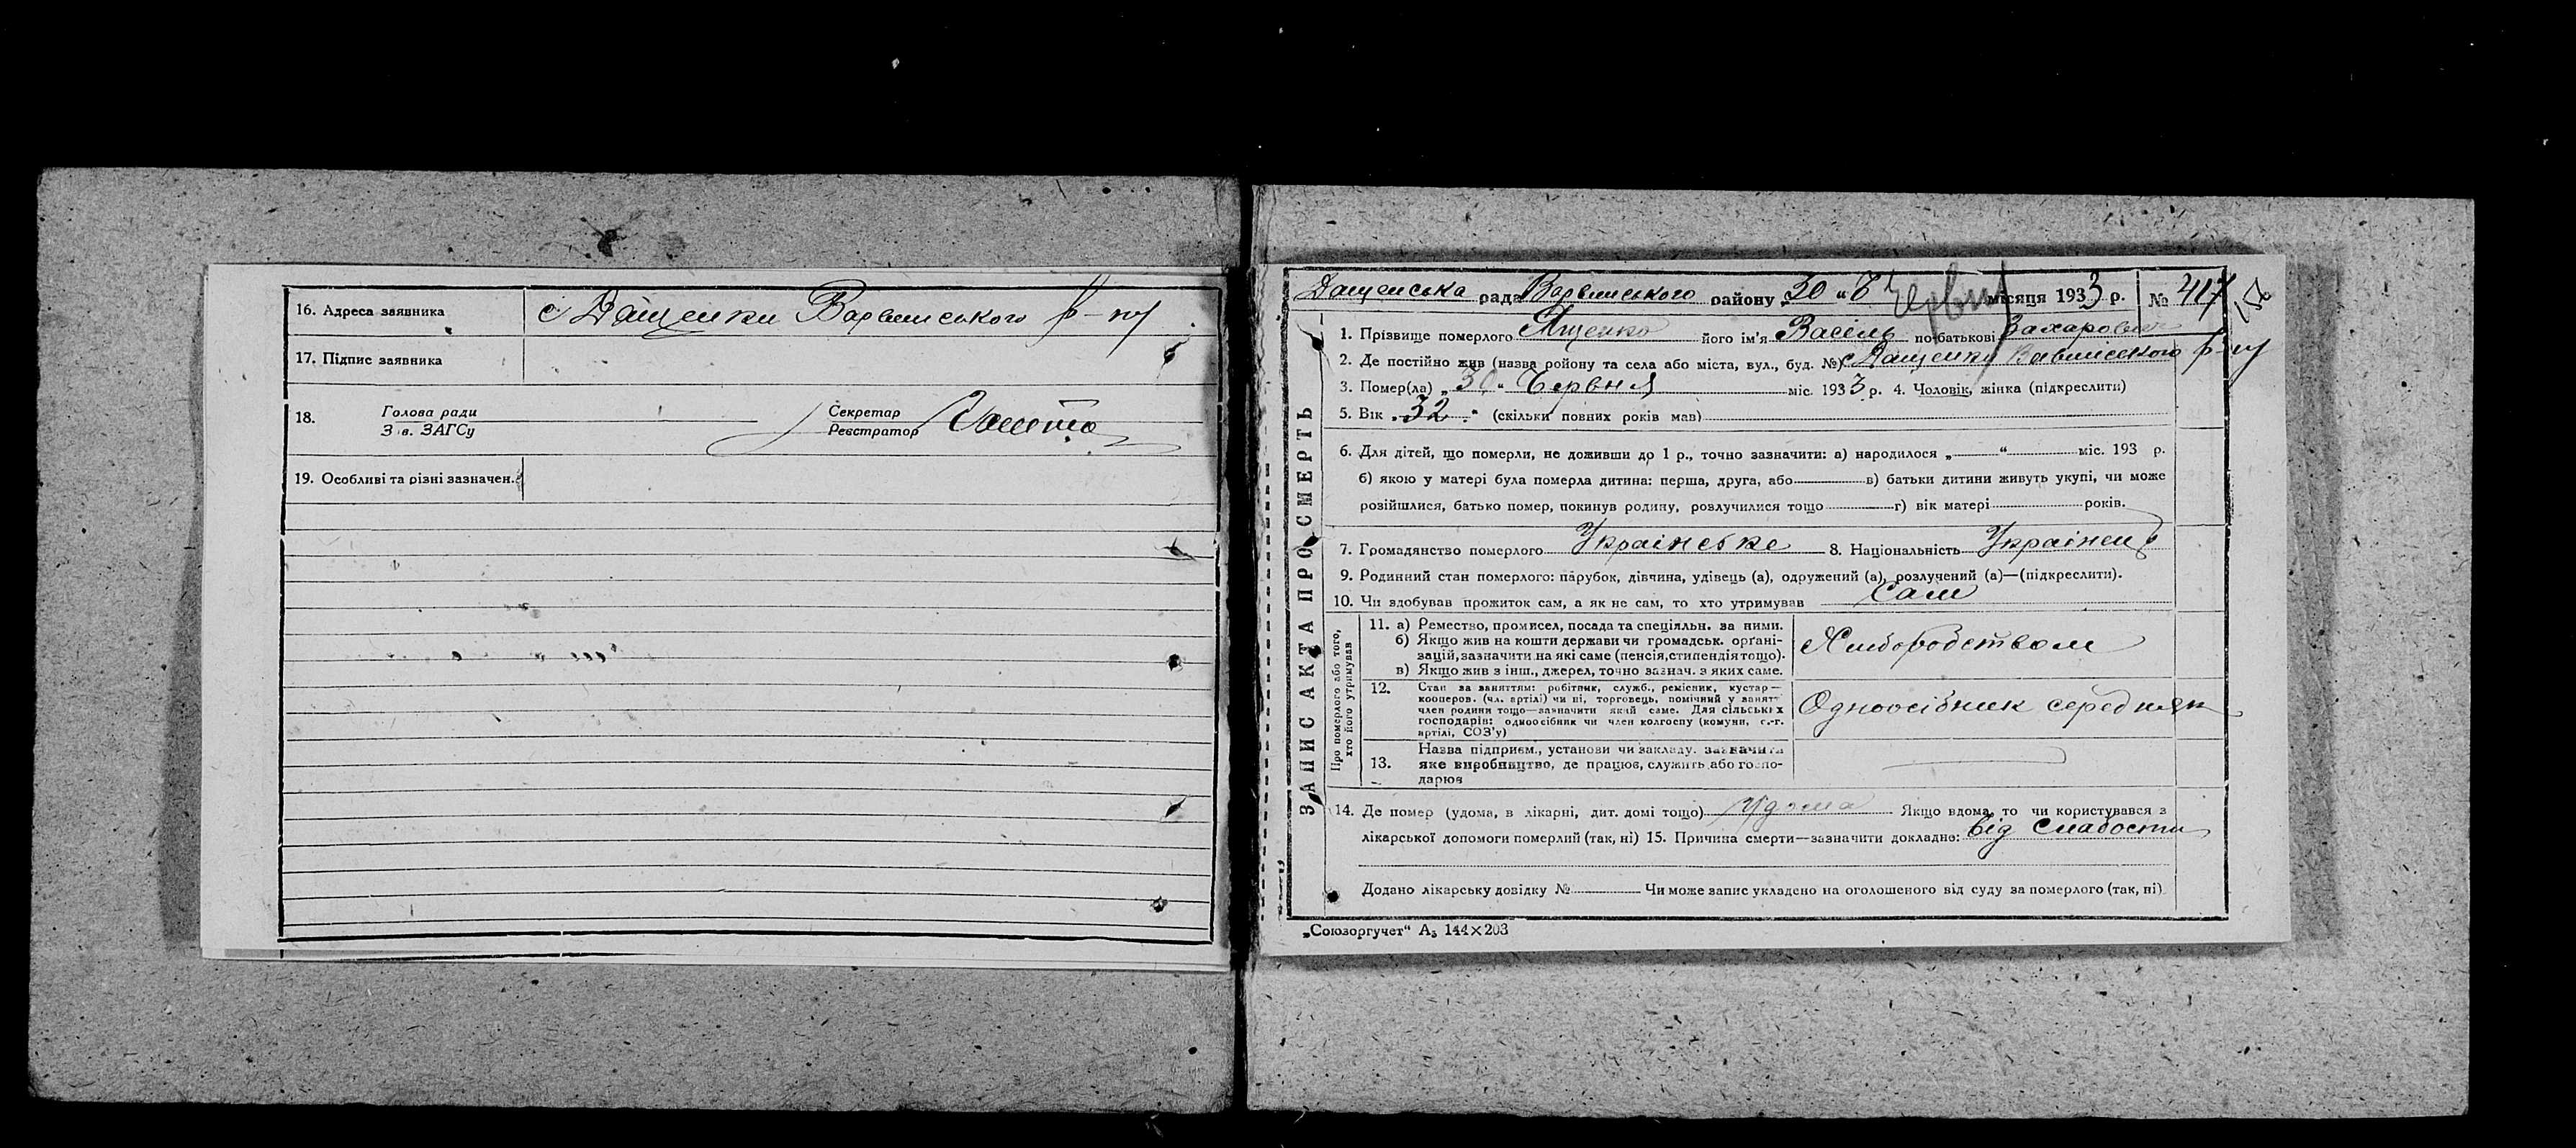 16. Адреса заявника с Дащенки Варвинського р-ну
17. Підпис заявника
18. Голова ради Секретар
Зав. ЗАГСу Реєстратор
19. Особливі та різні зазначен.
Дащенська рада Варвинського району „30“ Червня місяця 1933 р. № 417
ЗАПИС АКТА ПРО СМЕРТЬ
1. Прізвище померлого Ященко його ім'я Васіль по батькові Захарович
2. Де постійно жив (назва ройону та села або міста, вул., буд. №) с Дащенки Варвинського р-ну
3. Помер(ла) „30“ Червня міс. 1933 р. 4. Чоловік, жінка (підкреслити)
5. Вік „32“ (скільки повних років мав)
6. Для дітей, що померли, не доживши до 1 р., точно зазначити: а) народилося „ “ міс. 193 р.
б) якою у матері була померла дитина: перша, друга, або в) батьки дитини живуть укупі, чи може
розійшлися, батько помер, покинув родину, розлучилися тощо г) вік матері років.
7. Громадянство померлого Українське 8. Національність Українец
9. Родинний стан померлого: парубок, дівчина, удівець (а), одружений (а), розлучений (а)—(підкреслити).
10. Чи здобував прожиток сам, а як не сам, то хто утримував Сам
Про померлого або того,
хто його утримував
11. а) Ремество, промисел, посада та спеціяльн. за ними.
б) Якщо жив на кошти держави чи громадськ. органі-
зацій, зазначити на які саме (пенсія, стипендія тощо).
в) Якщо жив з інш., джерел, точно зазнач. з яких саме.
Хлиборобством
12. Стан за заняттям: робітник, служб., ремісник, кустар—
кооперов. (чл. артілі) чи ні, торговець, помічний у занят.
член родини тощо—зазначити який саме. Для сільських
господарів: одноосібник чи член колгоспу (комуни, с.-г.
артілі, СОЗ'у)
Одноосібник середняк
13. Назва підприєм., установи чи закладу. зазначити
яке виробництво, де працює, служить або госпо-
дарює
14. Де помер (удома, в лікарні, дит. домі тощо) Удома Якщо вдома, то чи користувався з
лікарської допомоги померлий (так, ні) 15. Причина смерти—зазначити докладно: від слабости
Додано лікарську довідку № Чи може запис укладено на оголошеного від суду за померлого (так, ні)
„Союзоргучет“ А₃ 144×203